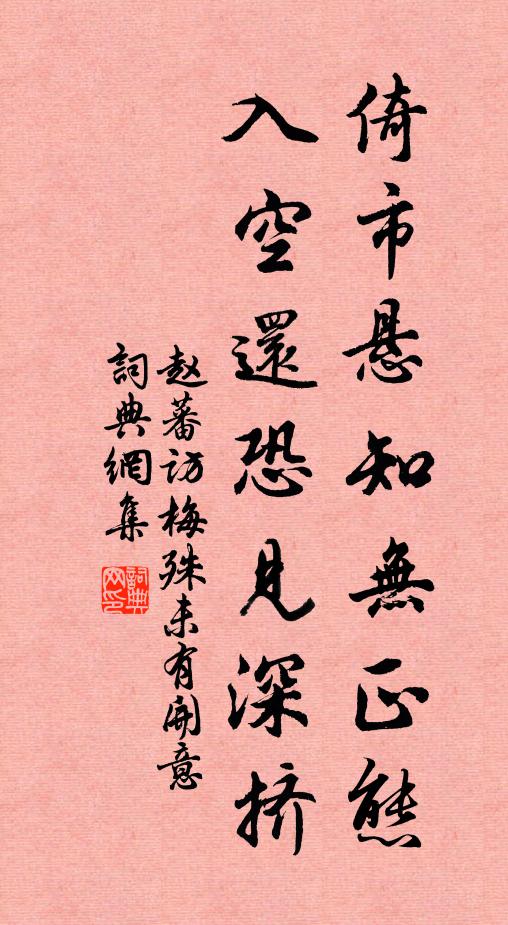 倚市悬知無正態
入空還恐見深挤
赵蕃访梅殊未有開意
詞典網集
詞典网印